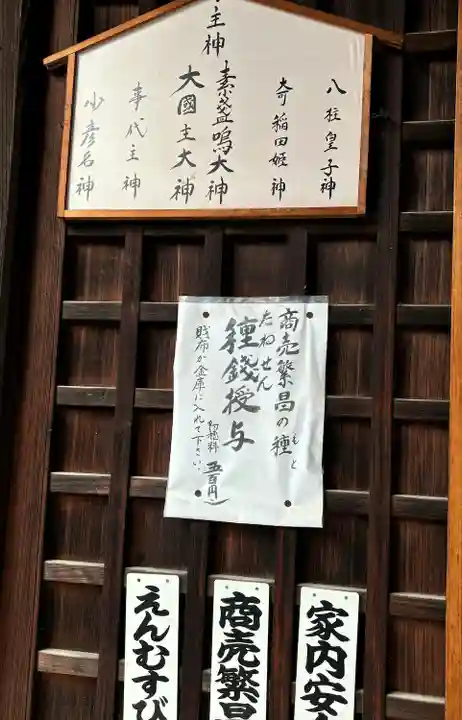 主神
八柱皇子神
奇稲田姫神
素盞嗚大神
大國主大神
事代主神
少彦名神
商売繁昌の種
もと
たねせん
種錢授与
初穂料 五百円
財布か金庫に入れて下さい。
家内安
商売繁昌
えんむすび